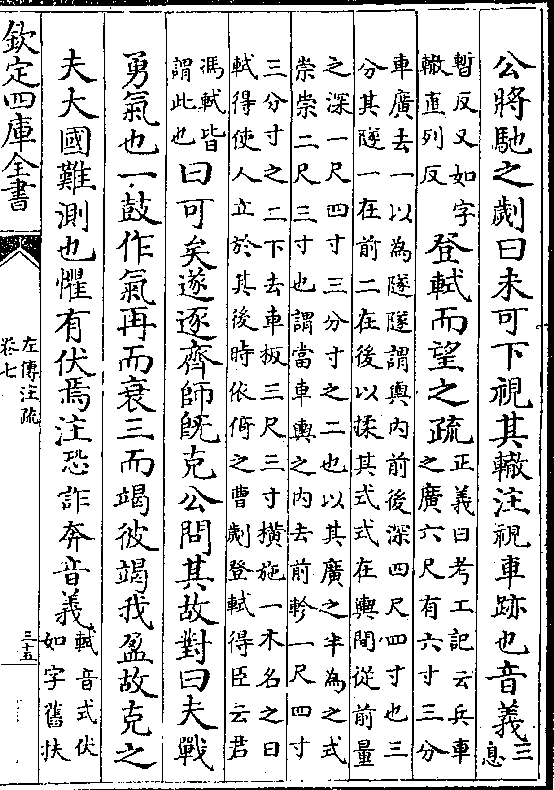 公將馳之劌曰未可下視其轍注視車跡也音義三
息
暫反又如字
轍直列反
登軾而望之疏
正義曰考工記云兵車
之廣六尺有六寸三分
車廣去一以為隧隧謂輿内前後深四尺四寸也三
分其隧一在前二在後以揉其式式在輿間從前量
之深一尺四寸三分寸之二也以其廣之半為之式
崇崇二尺三寸也謂當車輿之内去前軫一尺四寸
三分寸之二下去車板三尺三寸橫施一木名之曰
軾得使人立於其後時依倚之曹劌登軾得臣云君
馮軾皆
謂此也
曰可矣遂逐齊師既克公問其故對曰夫戰
勇氣也一鼓作氣再而衰三而竭彼竭我盈故克之
夫大國難測也懼有伏焉注恐詐奔音義
軾音式伏
如字舊扶
欽定四庫全書
左傳注疏
卷七
三十五